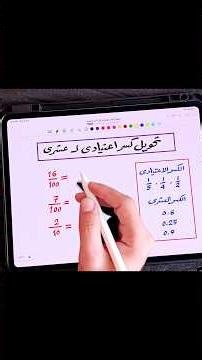 تحويل كسر اعتيادى لـ عشرى
16/100 =
7/100 =
2/10 =
الكسر الاعتيادى
1/5 , 1/4 , 1/2
الكسر العشرى
0.6
0.25
0.9